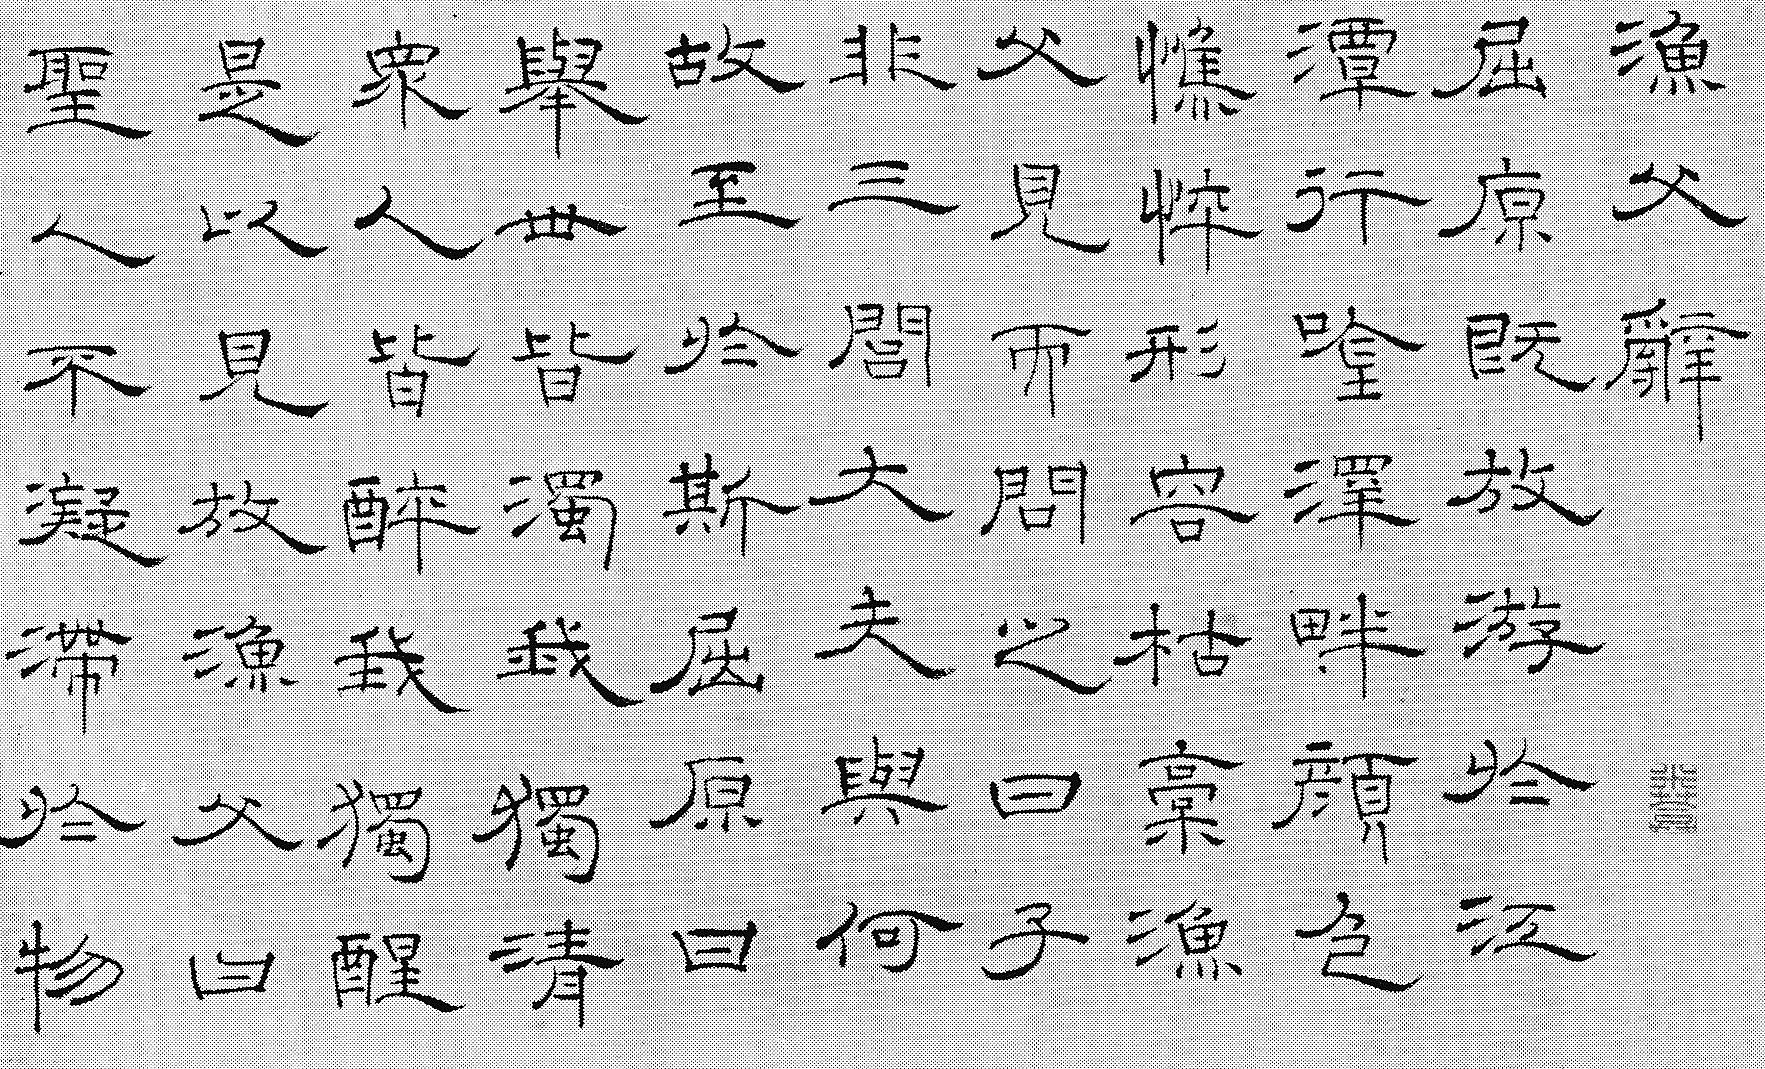 漁父辭
屈原既放游於江
潭行唫澤畔顏色
憔悴形容枯槁漁
父見而問之曰子
非三閭大夫與何
故至於斯屈原曰
舉世皆濁我獨清
衆人皆醉我獨醒
是以見放漁父曰
聖人不凝滯於物